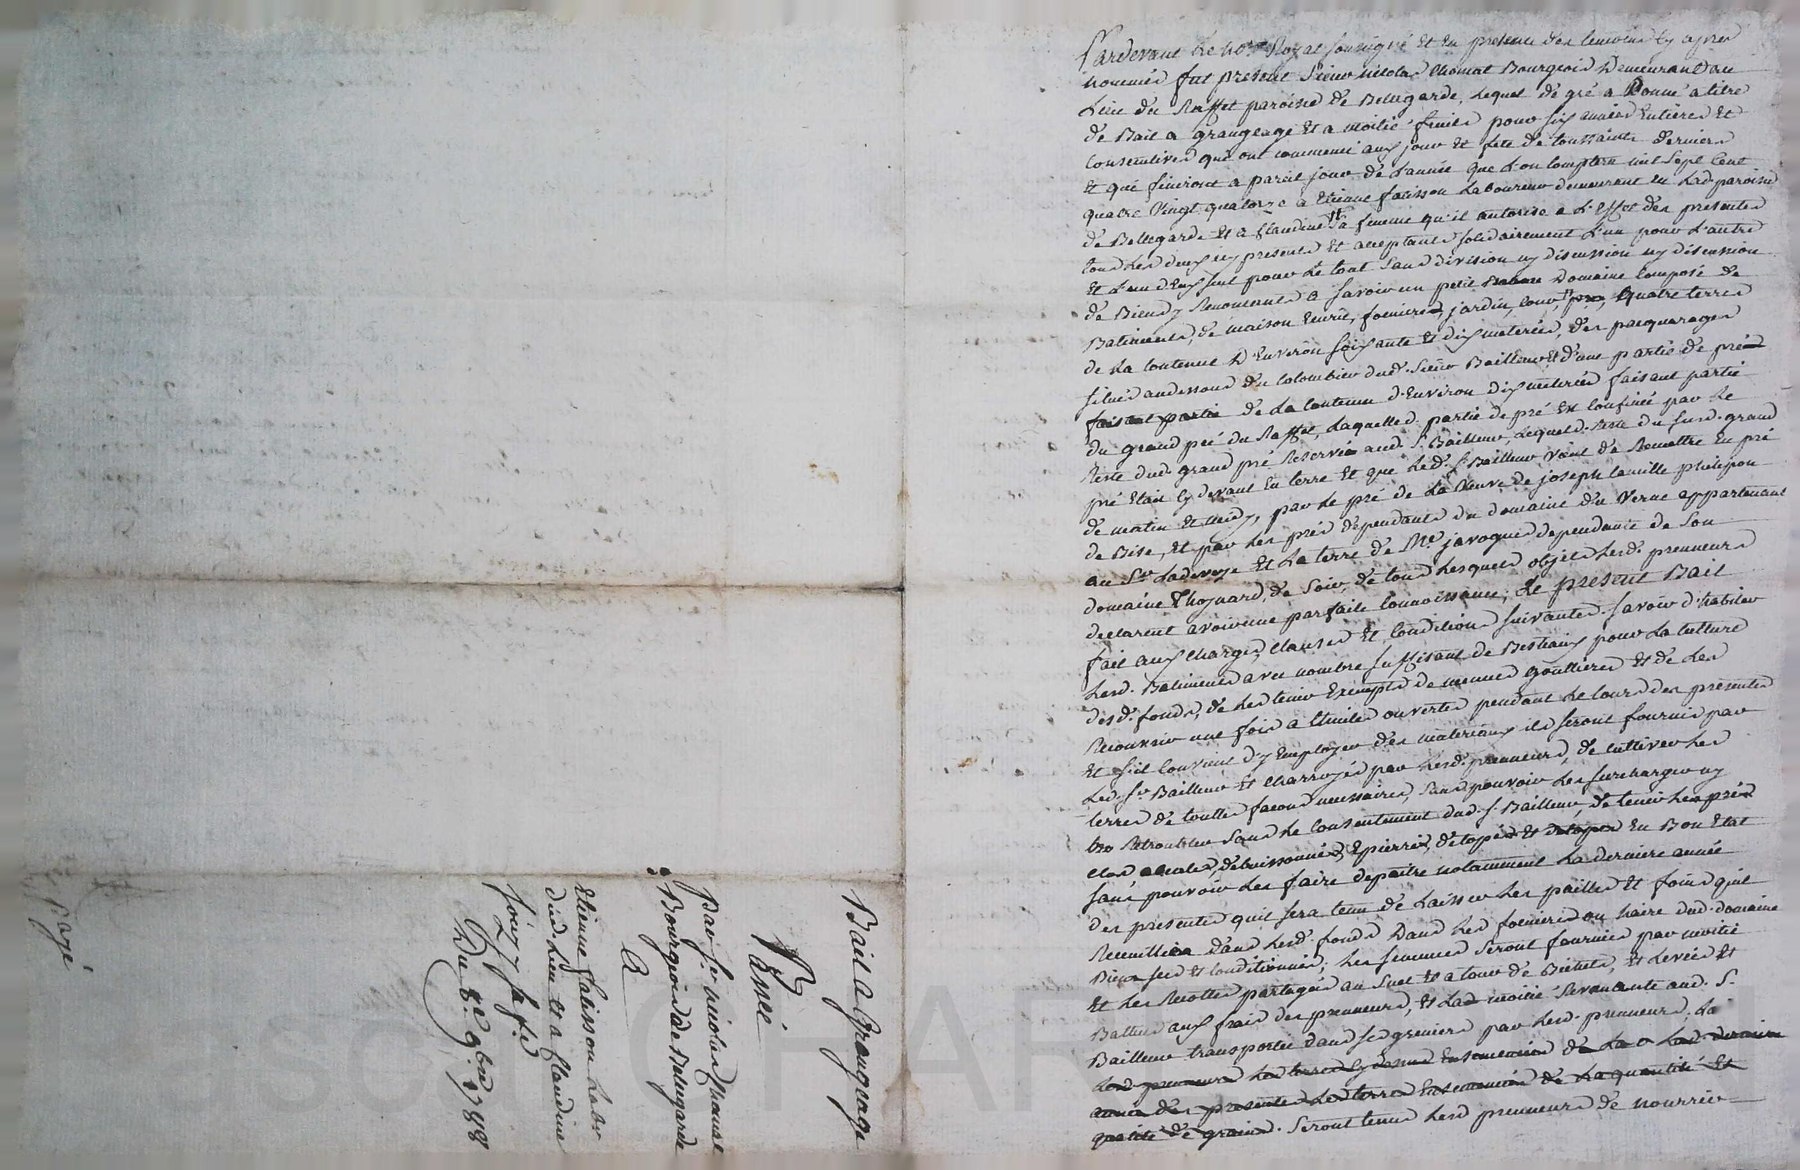 Pardevant le no.re Royal soussigné et en presence des temoins cy apres
nommés fut present Sieur nicolas Chomat Bourgeois Demeurant au
Lieu du Roffet paroisse de Bellegarde, Lequel de gré a Donné a titre
de Bail a grangeage et a moitié fruits pour six années Entieres et
Consecutives qui ont commencé aux jour et fete de toussaints derniers
et qui finiront a pareil jour de L'année que L'on comptera mil Sept Cent
quatre Vingt quatorze a Etienne falisson Laboureur demeurant en Lad. paroisse
de Bellegarde et a flandine sa femme qu'il autorise a L'Effet des presentes
tous Les deux cy presents et acceptants solidairement L'un pour L'autre
et L'un d'Eux seul pour Le tout Sans division ny discussion ny discussion
de Biens y Renoncent a Savoir un petit Domaine Composé de
Batiments, de maison Ecurie, fenieres, jardin, cour, Quatre terres
de La Contenue D'Environ soixante et dix meterées, des paquerages
situé audessous du Colombier dud. Sieur Bailleur et d'une partie de pré
faisant partie de La Contenue d'Environ dix meterées faisant partie
du grand pré du Roffet, Laquelle d. partie de pré Est Confinée par Le
Reste dud. grand pré Reservé aud. S. Bailleur, Lequel d. Reste du susd. grand
pré Etait cy devant En terre Et que Led. S. Bailleur vient de Remettre En pré
de matin et midy, par Le pré de La Veuve de joseph Camille philipon
de Bise, Et par Les prés dépendants du domaine du Verne appartenant
au S.r Ladeveze Et La terre de M.e javogues dependante de Son
domaine Thoynard, de Soir, de tous Lesquels objets Lesd. preneurs
declarent avoir une parfaite Connoissance; Le present Bail
fait aux Charges, Clauses Et Conditions Suivantes. Savoir d'habiter
Lesd. Batiments avec nombre suffisant de Bestiaux pour La Culture
desd. fonds, de Les tenir Exempts de menues gouttieres Et de Les
Recouvrir une fois a thuiles ouvertes pendant Le Cours des presentes
Et s'il Convient d'y Employer des materiaux ils Seront fournis par
Led. S.r Bailleur Et Charroyés par Lesd. preneurs, de Cultiver Les
terres de touttes façons necessaires, Sans pouvoir Les surcharger ny
Retroubler Sans Le Consentement dud. S. Bailleur, de tenir Les prés
Clos, debuissonnés, Epierrés, détopés Et En Bon Etat
sans pouvoir Les faire depaitre notamment La derniere année
des presentes qu'il sera tenu de Laisser Les pailles Et foins qui
Recueillera dans Lesd. fonds Dans Les fenieres ou haire dud. domaine
Bien secs et Conditionnés; Les semences Seront fournies par moitié
Et Les Recoltes partagées au Suel et a tour de Bichet, Et Levées Et
Battues aux frais des preneurs, Et Lad. moitié Revenante aud. S.
Bailleur transportée dans Ses greniers par Lesd. preneurs; La
Lesd. preneurs Les terres Ensemencées de La Lad. derniere
année des presentes Les terres Ensemencées de La quantité Et
qualité de grains. Seront tenus Lesd. preneurs de nourrir
Bail a Grangeage
Passé
Par S.r nicolas Chomat
Bourgeois de Bellegarde
a
Etienne falisson Labr
dud. Lieu et a flandine
sa f.e
Du 8.e 9bre 1788
Payé